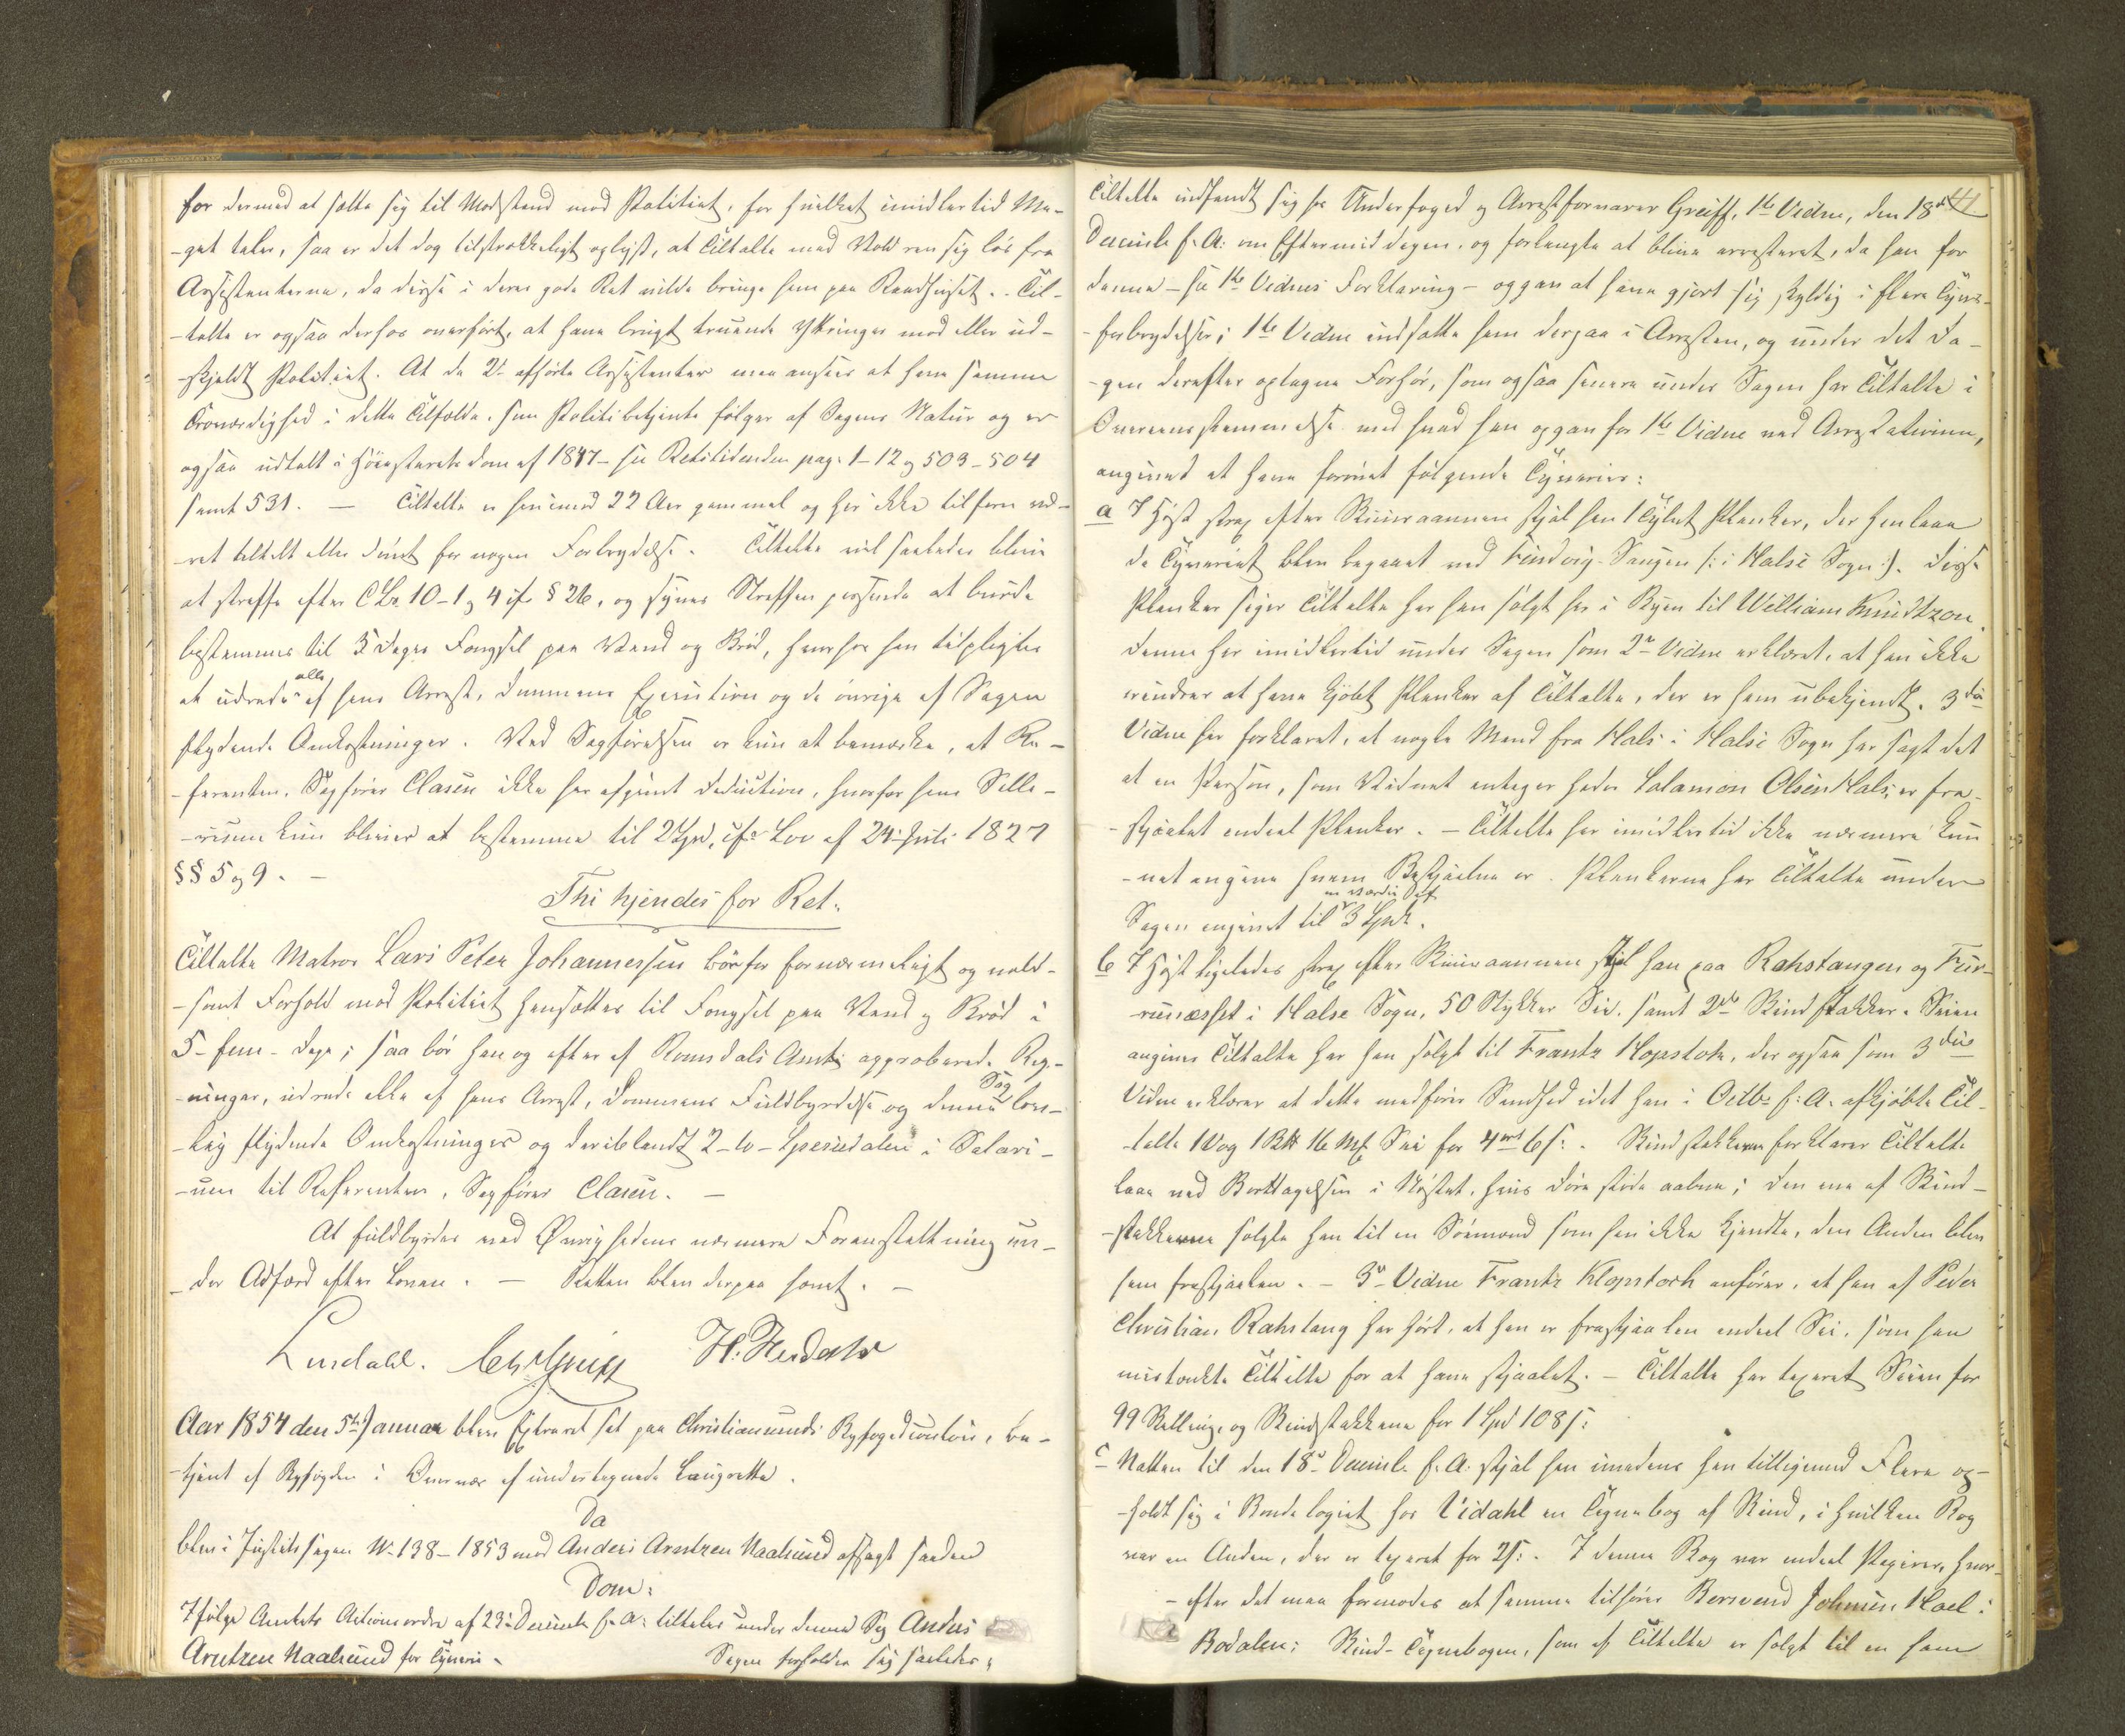 for dermed at sætte sig til Modstand mod Politiet, for hvilket imidlertid Me-
-get taler, saa er det dog tilstrækkeligt oplyst, at Tiltalte med Vold rev sig løs fra
Assistenterne, da disse i deres gode Ret vilde bringe ham paa Raadhuset. Til-
-talte er ogsaa derhos overført, at have brugt truende Yttringer mod eller ud-
-skjeldt Politiet. At de 2de afhørte Assistenter maa ansees at have samme
Troværdighed i dette Tilfælde som Politibetjente følger af Sagens Natur og er
ogsaa udtalt i Høiesteretsdom af 1847 - see Retstidenden pag. 1-12 og 503-504
samt 531. — Tiltalte er henimod 22 Aar gammel og har ikke tilforn væ-
ret tiltalt eller dømt for nogen Forbrydelse. Tiltalte vil saaledes blive
at straffe efter C Lov 10-1 og 4 jfr § 26, og synes Straffen passende at burde
bestemmes til 5 Dages Fængsel paa Vand og Brød, hvorhos han tilpligtes
at udrede alle af hans Arrest, Dommens Execution og de øvrige af Sagen
flydende Omkostninger. Ved Sagførelsen er kun at bemærke, at Re-
-ferenten, Sagfører Clasen ikke har afgivet Deduction, hvorfor hans Salle-
-rium kun bliver at bestemme til 2 Spd, jfr Lov af 24 Juli 1827
§§ 5 og 9. —
Thi kjendes for Ret:
Tiltalte Matros Lars Peter Johannessen bør for fornærmeligt og vold-
-somt Forhold mod Politiet hensættes til Fængsel paa Vand og Brød i
5 - fem - Dage; saa bør han og efter af Romsdals Amt approberede Reg-
-ninger, udrede alle af hans Arrest, Dommens Fuldbyrdelse og denne Sag lov-
-lig flydende Omkostninger og deriblandt 2 - to - Speciedaler i Salari-
-um til Referenten, Sagfører Clasen. —
At fuldbyrdes ved Øvrighedens nærmere Foranstaltning un-
-der Adfærd efter Loven. — Retten blev derpaa hævet. —
Lindahl. H.
Aar 1854 den 5te Januar blev Extraret sat paa Christiansunds Byfogedcontoir, be-
-tjent af Byfogden i Overvær af undertegnede Laugrette.
Da
blev i Justitssagen No 138-1853 mod Anders Arntzen Naalsund afsagt saadan
Dom:
Ifølge Amtets Actionsordre af 23 Decembr f. A. tiltales under denne Sag Anders
Arntzen Naalsund for Tyveri. Sagen forholder sig saaledes:
41
Tiltalte indfandt sig hos Underfoged og Arrestforvarer Greiff, 1ste Vidne, den 18de
Decembr f. A. om Eftermiddagen, og forlangte at blive arresteret, da han for
denne - see 1ste Vidnes Forklaring - opgav at have gjort sig skyldig i flere Tyvs-
-forbrydelser; 1ste Vidne indsatte ham derpaa i Arresten, og under det Da-
-gen derefter optagne Forhør, som ogsaa senere under Sagen har Tiltalte i
Overeensstemmelse med hvad han opgav for 1ste Vidne ved Arrestationen,
angivet at have forøvet følgende Tyverier:
a I Høst strax efter Skuuraannen stjal han 1 Tylvt Planker, der henlaae
da Tyveriet blev begaaet ved Vindvig-Saugen /: i Halse Sogn :/. Disse
Planker siger Tiltalte har han solgt her i Byen til William Knudtzon,
denne har imidlertid under Sagen som 2det Vidne erklæret, at han ikke
erindrer at have kjøbt Planker af Tiltalte, der er ham ubekjendt. 3die
Vidne har forklaret, at nogle Mænd fra Hals i Halse Sogn har sagt det
at en Person, som Vidnet antager heder Salamon Olsen Hals, er fra-
-stjaalet endeel Planker. — Tiltalte har imidlertid ikke nærmere kun-
-net angive hvem Bestjaalne er. Plankerne har Tiltalte under
Sagen angivet til en Værdie af 3 Spdr.
b I Høst ligeledes strax efter Skuuraannen stjal han paa Rahstangen og Fur-
runesset i Halse Sogn, 50 Stykker Sei, samt 2de Skindstakker. Seien
angiver Tiltalte har han solgt til Frantz Klopstok, der ogsaa som 3die
Vidne erklærer at dette medfører Sandhed idet han i Octbr f. A. afkjøbte Til-
-talte 1 Vog 1 B℔ 16 Mk Sei for 4 ort 6 s. Skindstakkerne forklarer Tiltalte
laae ved Borttagelsen i Nøstet, hvis Døre stode aabne; den ene af Skind-
-stakkerne solgte han til en Sømand som han ikke kjendte, den Anden blev
ham frastjaalen. — 3die Vidne Frantz Klopstock anfører, at han af Peder
Christian Rahstang har hørt, at han er frastjaalen endeel Sei, som han
mistænkte Tiltalte for at have stjaalet. — Tiltalte har taxeret Seien for
99 Skilling, og Skindstakkene for 1 Spd 108 s:
c Natten til den 18de Decembr f. A. stjal han imedens han tilligemed Flere op-
-holdt sig i Bondelogiet hos Vidahl en Tegnebog af Skind, i hvilken Bog
var en Anden, der er taxeret for 2 s: I denne Bog var endeel Papirer, hvor-
-efter det maa formodes at samme tilhører Berivend Johnsen Hoel i
Bodalen: Skind-Tegnebogen, som af Tiltalte er solgt til en ham